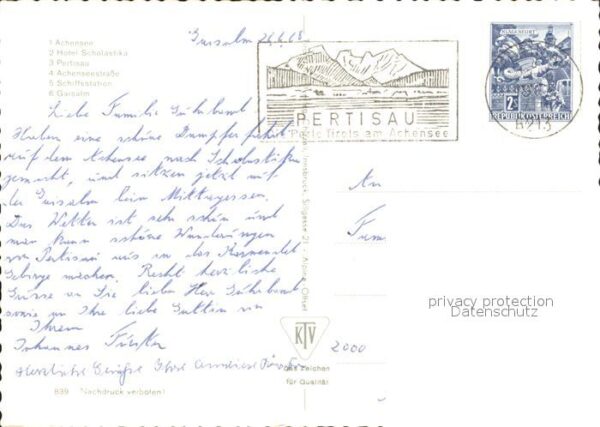 Gaisalm 26.6.68
1 Achensee
2 Hotel Scholastika
3 Pertisau
4 Achenseestraße
5 Schiffstation
6 Gaisalm
Liebe Familie
Haben eine schöne Dampferfahrt
auf dem Achensee nach Scholastika
gemacht, und sitzen jetzt auf
der Gaisalm beim Mittagessen.
Das Wetter ist sehr schön und
man kann schöne Wanderungen
von Pertisau aus in das Karwendel
Gebirge machen. Recht herzliche
Grüsse an Sie lieber Herr
sowie an Ihre liebe Gattin von
Ihrem
Johannes
Herzliche Grüße Ihre
839 Nachdruck verboten!
Innsbruck, Sillgasse 21 - Alpina Offset
KTV
Das Zeichen
für Qualität
PERTISAU
Perle Tirols am Achensee
KLAGENFURT
2
REPUBLIK ÖSTERREICH
6213
An
Fam
2000
privacy protection
Datenschutz